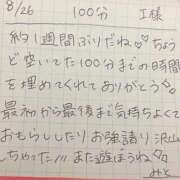 8/26 100分 I様
約1週間ぶりだね♡♡ちょう
ど空いてた100分までの時間
を埋めてくれてありがとう
最初から最後まで気持ちよくて
おもらししたりお強請り沢山
ちゃった!!!また遊ぼうね
みと